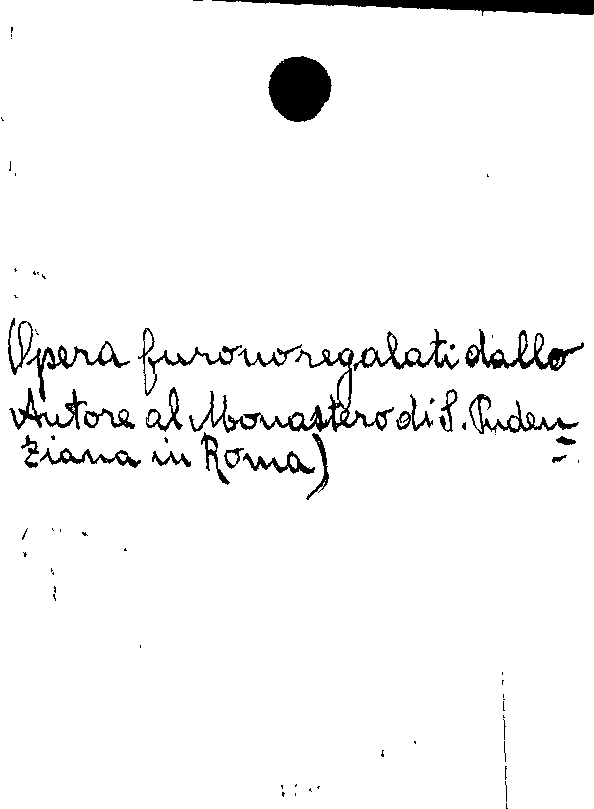 Opera furono regalati dallo
Autore al Monastero di S. Puden=
ziana in Roma)